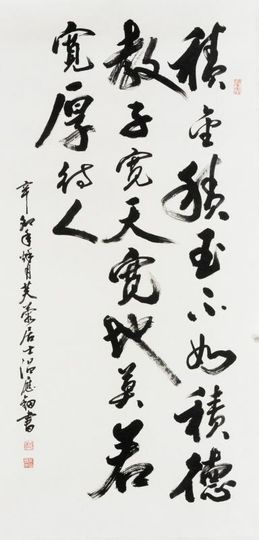 積金積玉不如積德
教子寬天寬地莫若
寬厚待人
辛卯年
月芙蓉居士沼應钿書